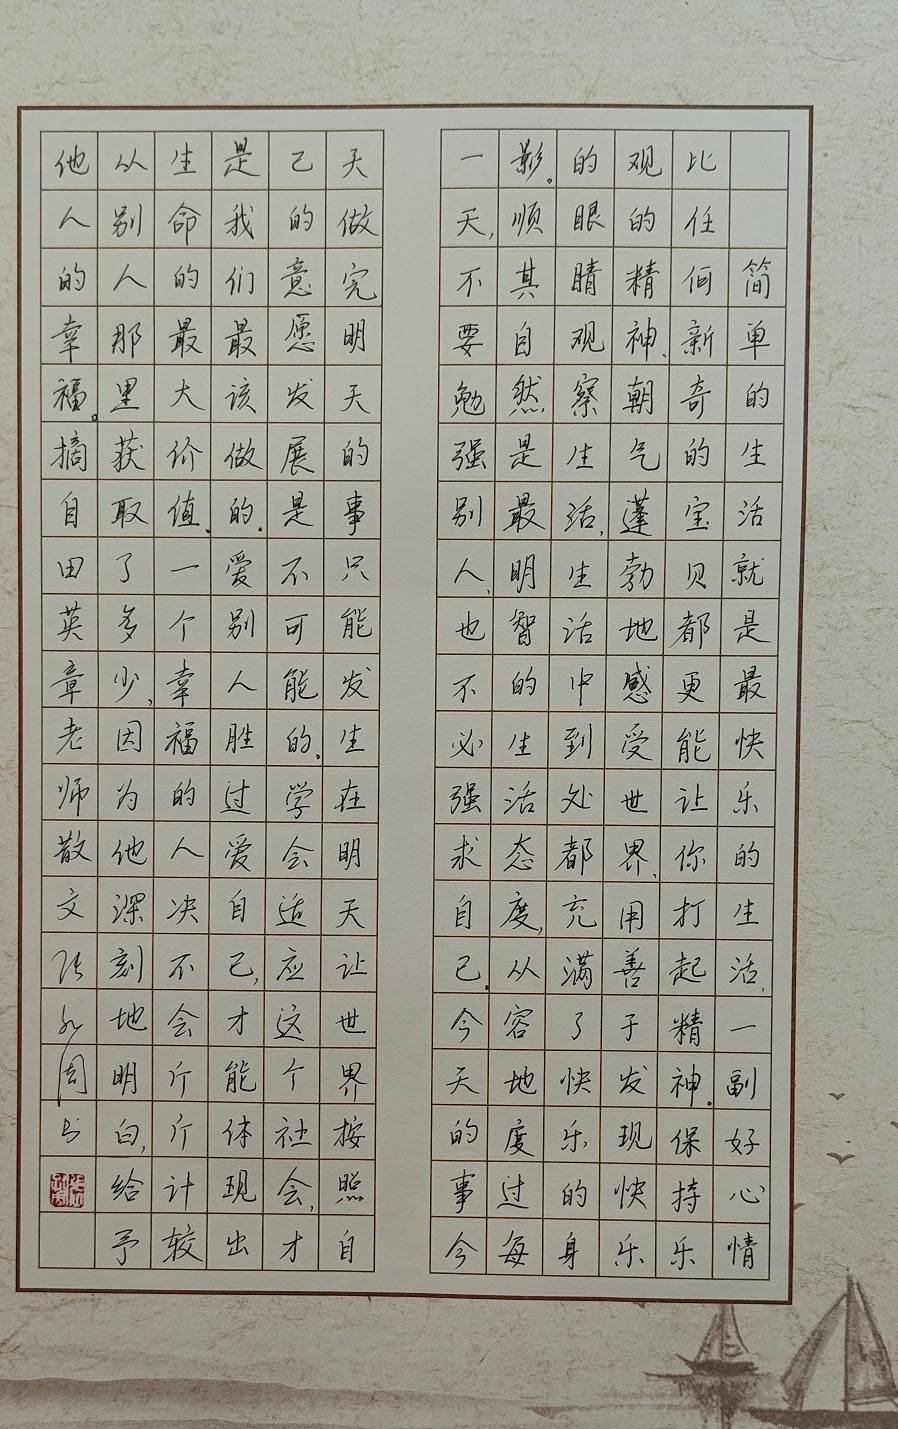 简单的生活就是最快乐的生活，一副好心情
比任何新奇的宝贝都更能让你打起精神。保持乐
观的精神、朝气蓬勃地感受世界，用善于发现快乐
的眼睛观察生活，生活中到处都充满了快乐的身
影。顺其自然是最明智的生活态度，从容地度过每
一天，不要勉强别人，也不必强求自己。今天的事今
天做完明天的事只能发生在明天让世界按照自
己的意愿发展是不可能的。学会适应这个社会，才
是我们最该做的。爱别人胜过爱自己，才能体现出
生命的最大价值。一个幸福的人决不会斤斤计较
从别人那里获取了多少，因为他深刻地明白，给予
他人的幸福。摘自田英章老师散文